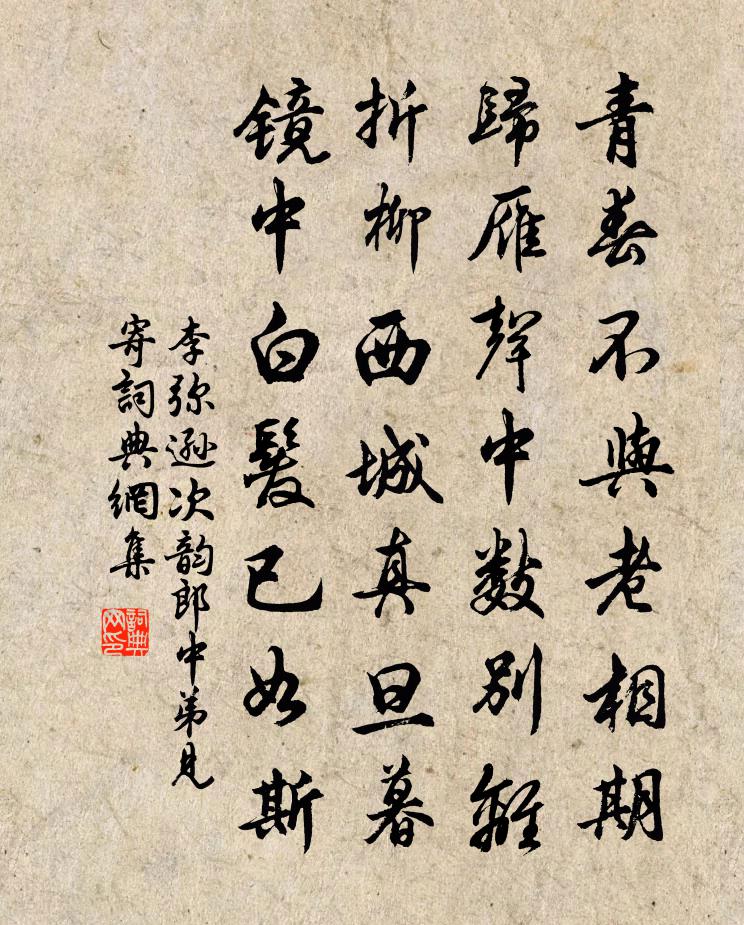 青春不與老相期
歸雁聲中數別離
折柳西城真旦暮
鏡中白髮已如斯
李弥遜次韵郎中弟見
寄詞典網集
詞典
网印